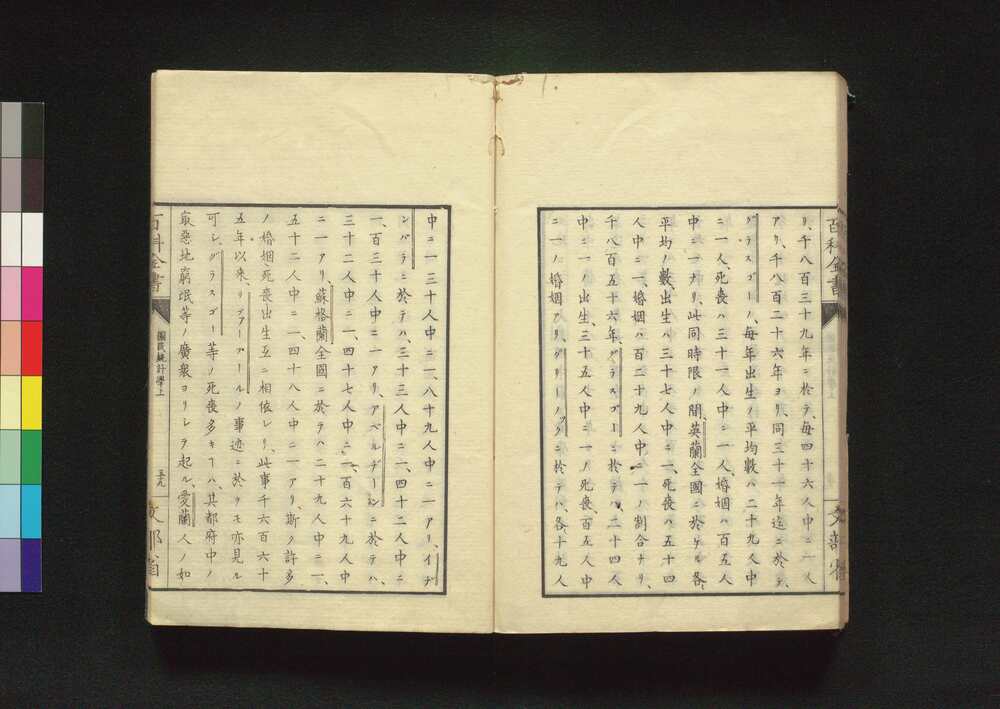 リ、千八百三十九年ニ於テ、毎四十六人中ニ一人
アリ、千八百二十六年ヨリ、同三十一年迄ニ於テ、
グラスゴーノ、毎年出生ノ平均數ハ二十九人中
ニ一人、死喪ハ三十一人中ニ一人、婚姻ハ百五人
中ニ一ナリ、此同時限ノ間、英蘭全國ニ於ケル各、
平均ノ數、出生ハ三十七人中ニ一、死喪ハ五十四
人中ニ一、婚姻ハ百二十九人中ニ一ノ割合ナリ、
千八百五十六年、グラスゴーニ於テハ二十四人
中ニ一ノ出生、三十五人中ニ一ノ死喪、百五人中
ニ一ノ婚姻アリ、グリーノックニ於テハ、各十九人
百科全書
文部省
中ニ一三十人中ニ一、八十九人中ニ一アリ、イヂ
ンバラニ於テハ、三十三人中ニ一、四十二人中ニ
一、百三十人中ニ一アリ、アベルヂーンニ於テハ、
三十二人中ニ一、四十七人中ニ一、百六十九人中
ニ一アリ、蘇格蘭全國ニ於テハ二十九人中ニ一、
五十二人中ニ一、四十八人中ニ一アリ、斯ク許多
ノ婚姻死喪出生互ニ相依レリ、此事千六百六十
五年以來、リヴァープールノ事迹ニ於テモ亦見ル
可シ、グラスゴー等ノ死喪多キヿハ、其都府中ノ
最惡地窮氓等ノ廣衆ヨリシテ起ル、愛蘭人ノ如
百科全書
國民統計學上
五十九
文部省